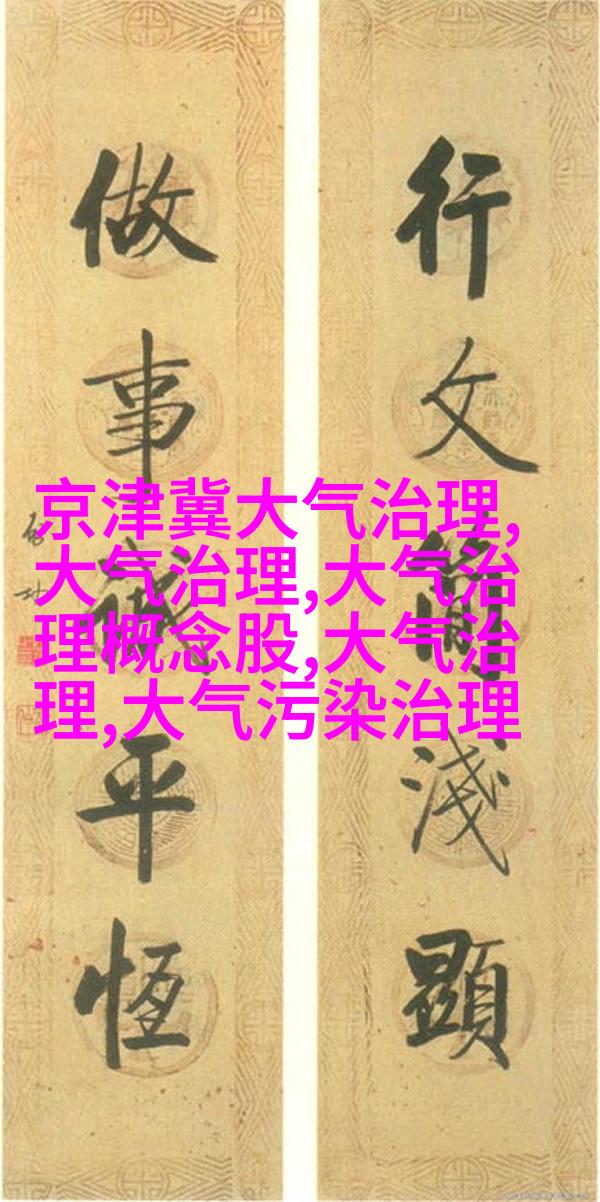 行文簡淺顯
做事誠平恆
启功
京津冀大气治理,
大气治理,大气治
理概念股,大气治
理,大气污染治理